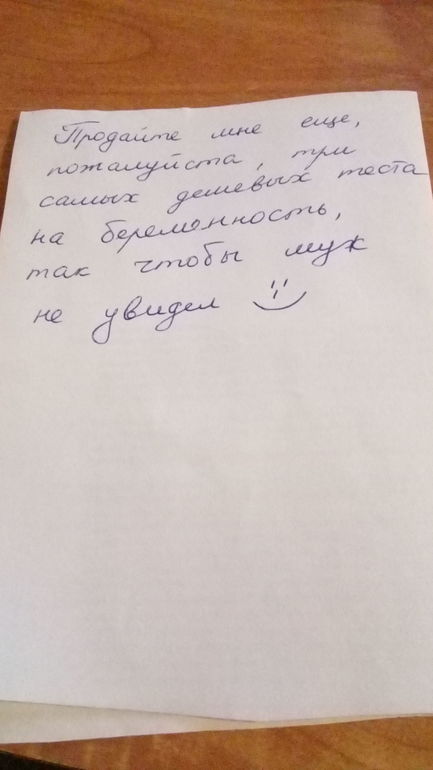 Продайте мне еще,
пожалуйста, три
самых дешевых теста
на беремонность,
так чтобы муж
не увидел